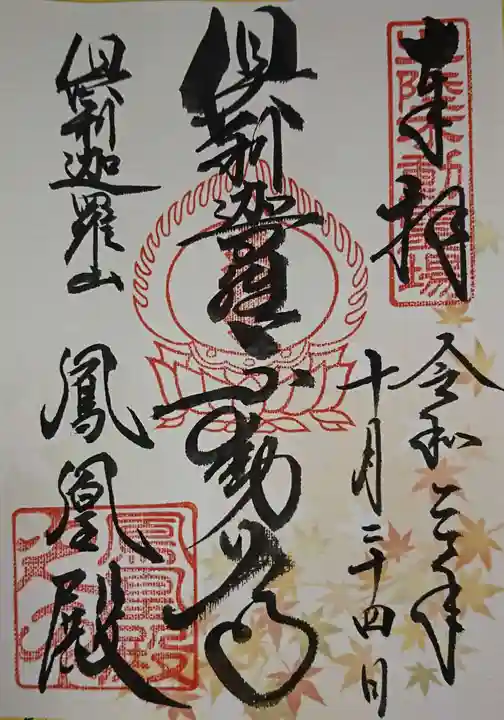 奉拝
北陸不動霊場
令和二年
十月二十四日
倶利迦羅不動尊
倶利迦羅山
鳳凰殿